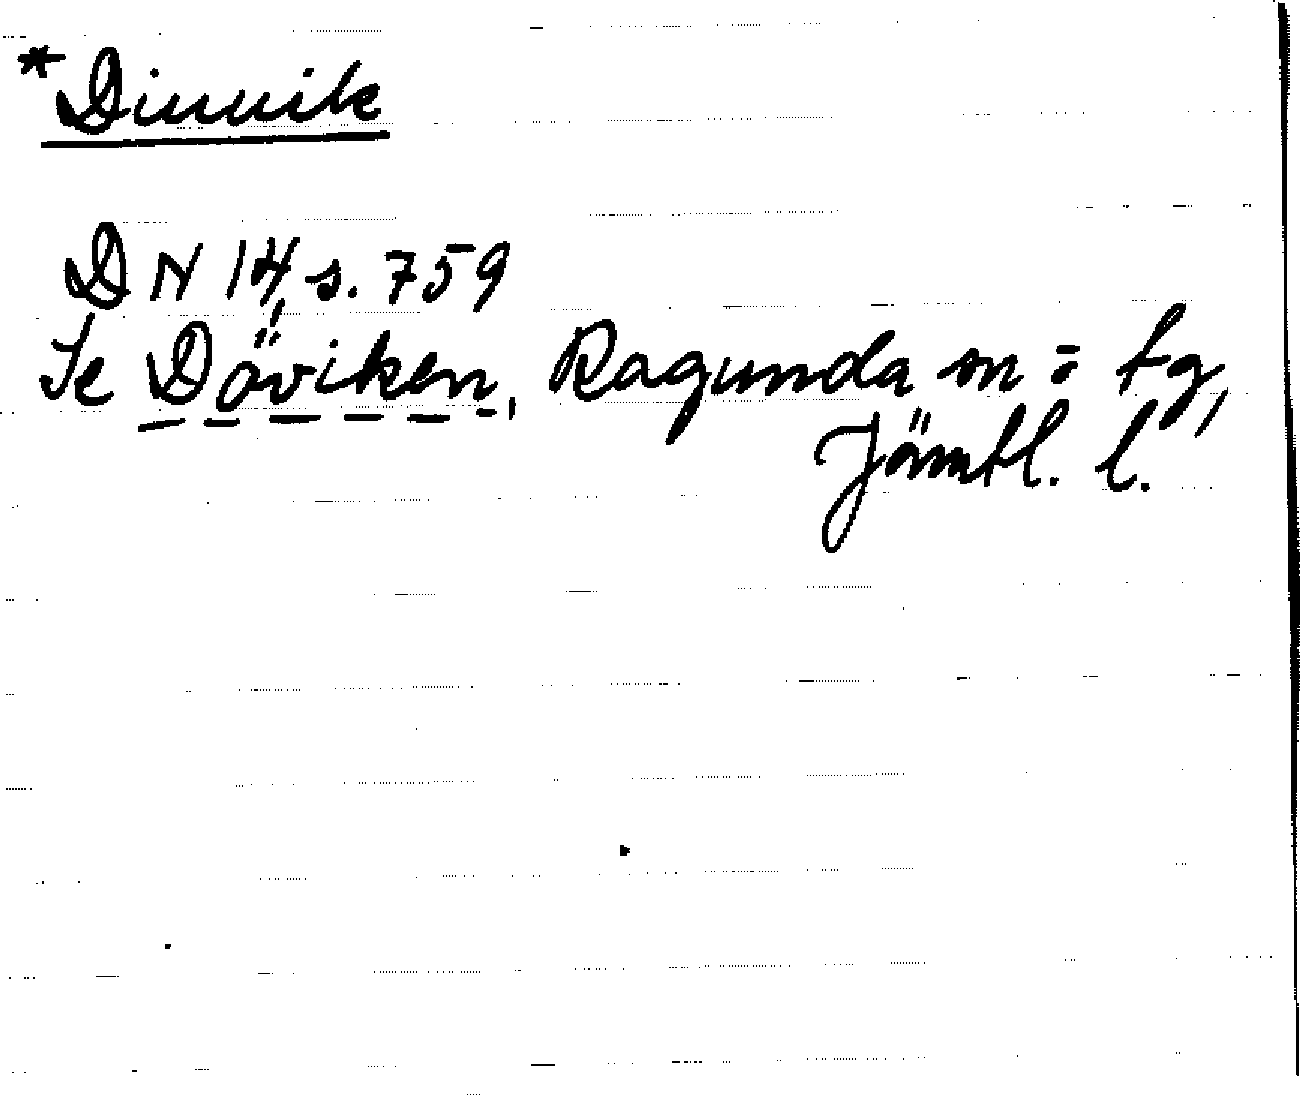 *Diuuik
DN 14, s. 759
Se Döviken, Ragunda sn = tg,
Jämtl. l.